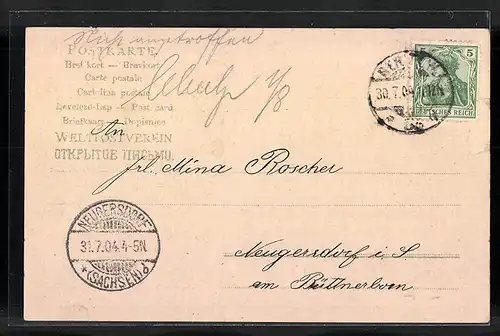 Nicht angetroffen
POSTKARTE
Brefkort — Brevkort
Carte postale
Cartolina postale
1/8
Levelező-Lap — Post card.
Briefkaart — Dopisnice
WELTPOSTVEREIN
ОТКРЫТОЕ ПИСЬМО.
5 5
30.7.04
DEUTSCHES REICH
An
frl. Mina Roscher
NEUGERSDORF
31.7.04. 4-5N.
(SACHSEN)
Neugersdorf i. S
am Büttnerborn